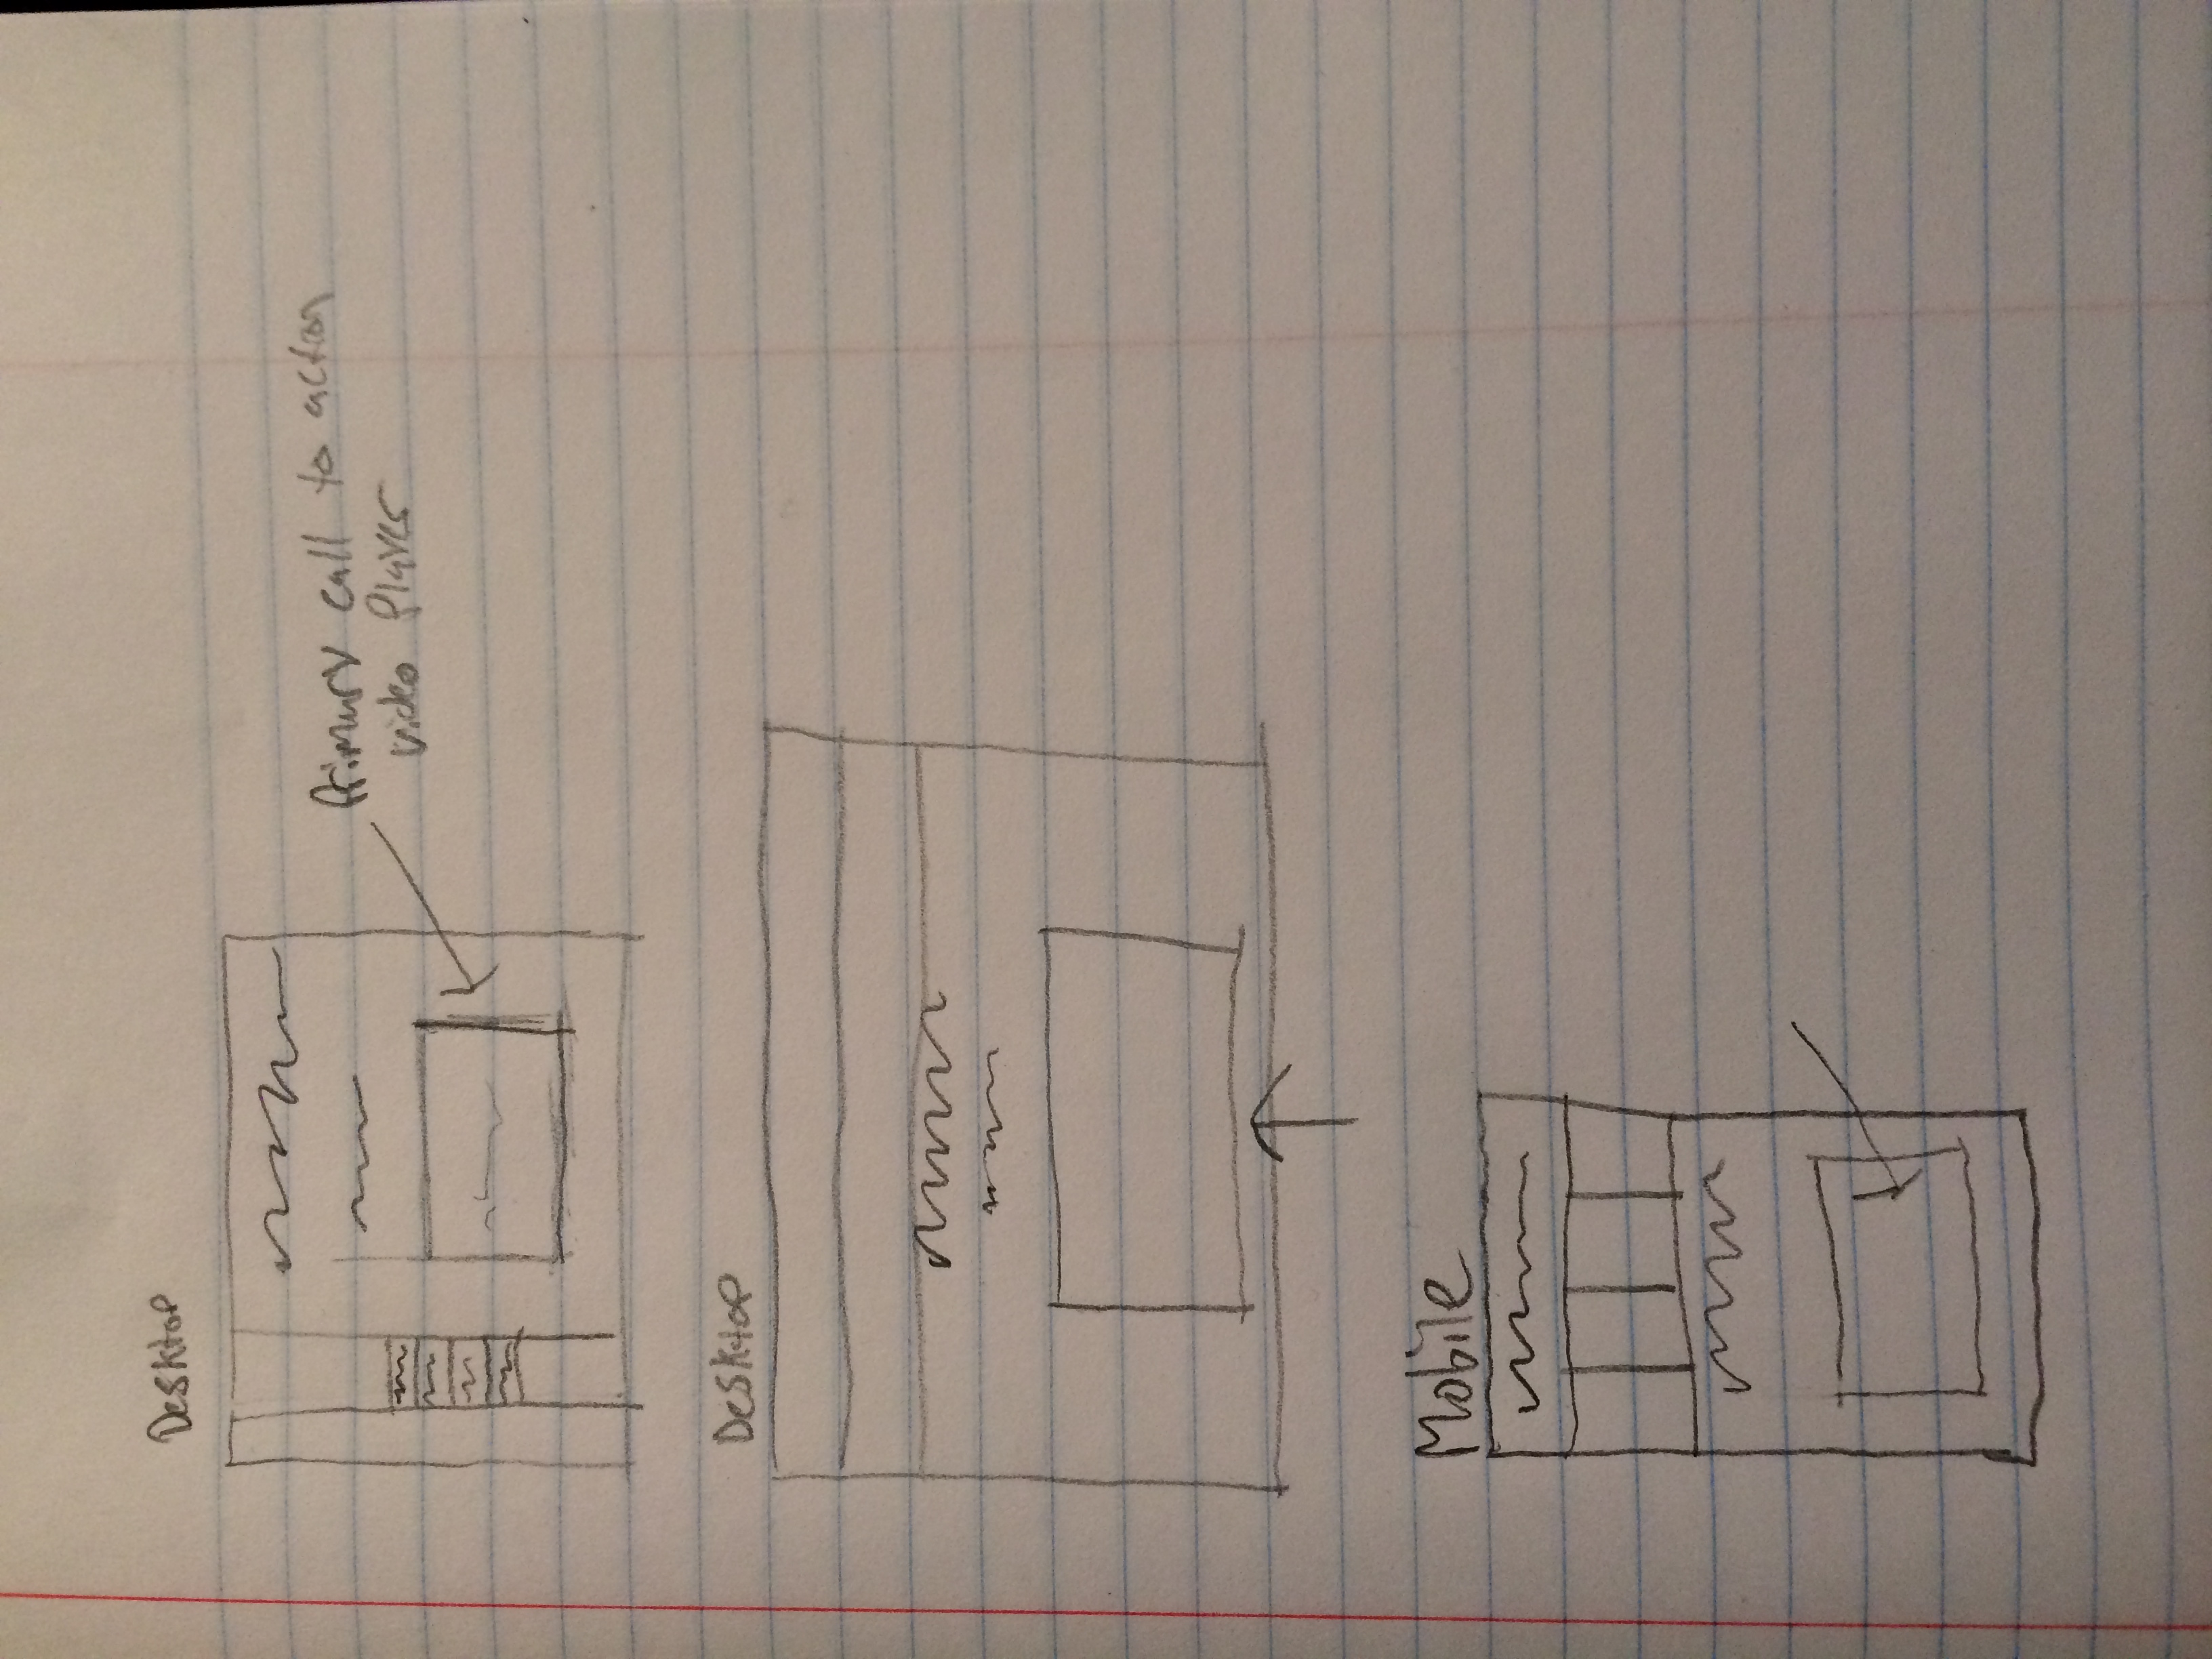 Desktop
Primary call to action
video Player
Desktop
Mobile